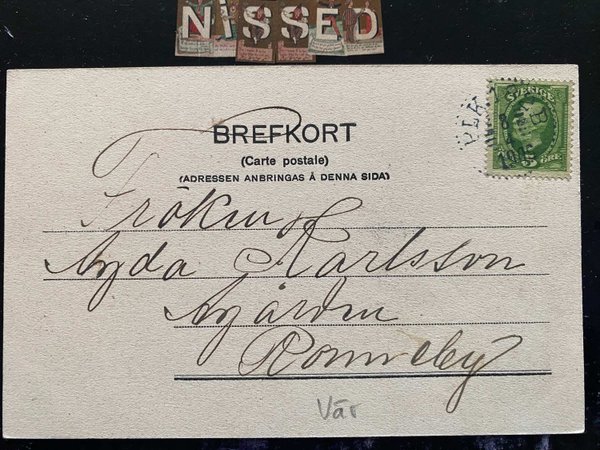 NISSED
BREFKORT
(Carte postale)
(ADRESSEN ANBRINGAS Å DENNA SIDA)
SVERIGE
ÖRE
Fröken
Ayda Karlsson
Nygården
Ronneby
Vår